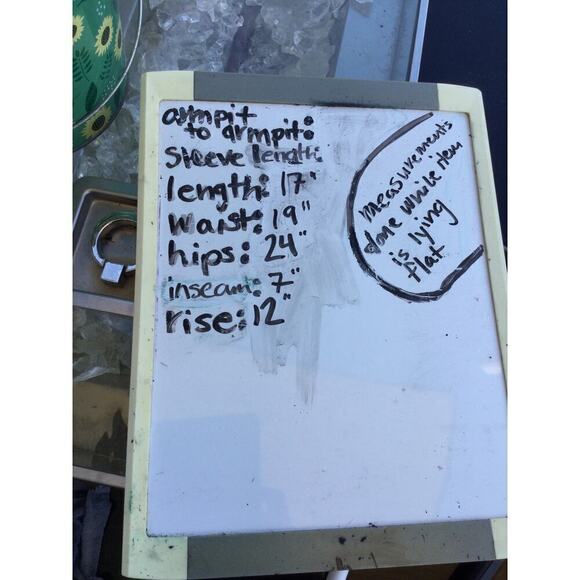 armpit
to armpit:
Sleeve length:
length: 17"
waist: 19"
hips: 24"
inseam: 7"
rise: 12"
measurements
done while item
is lying
flat